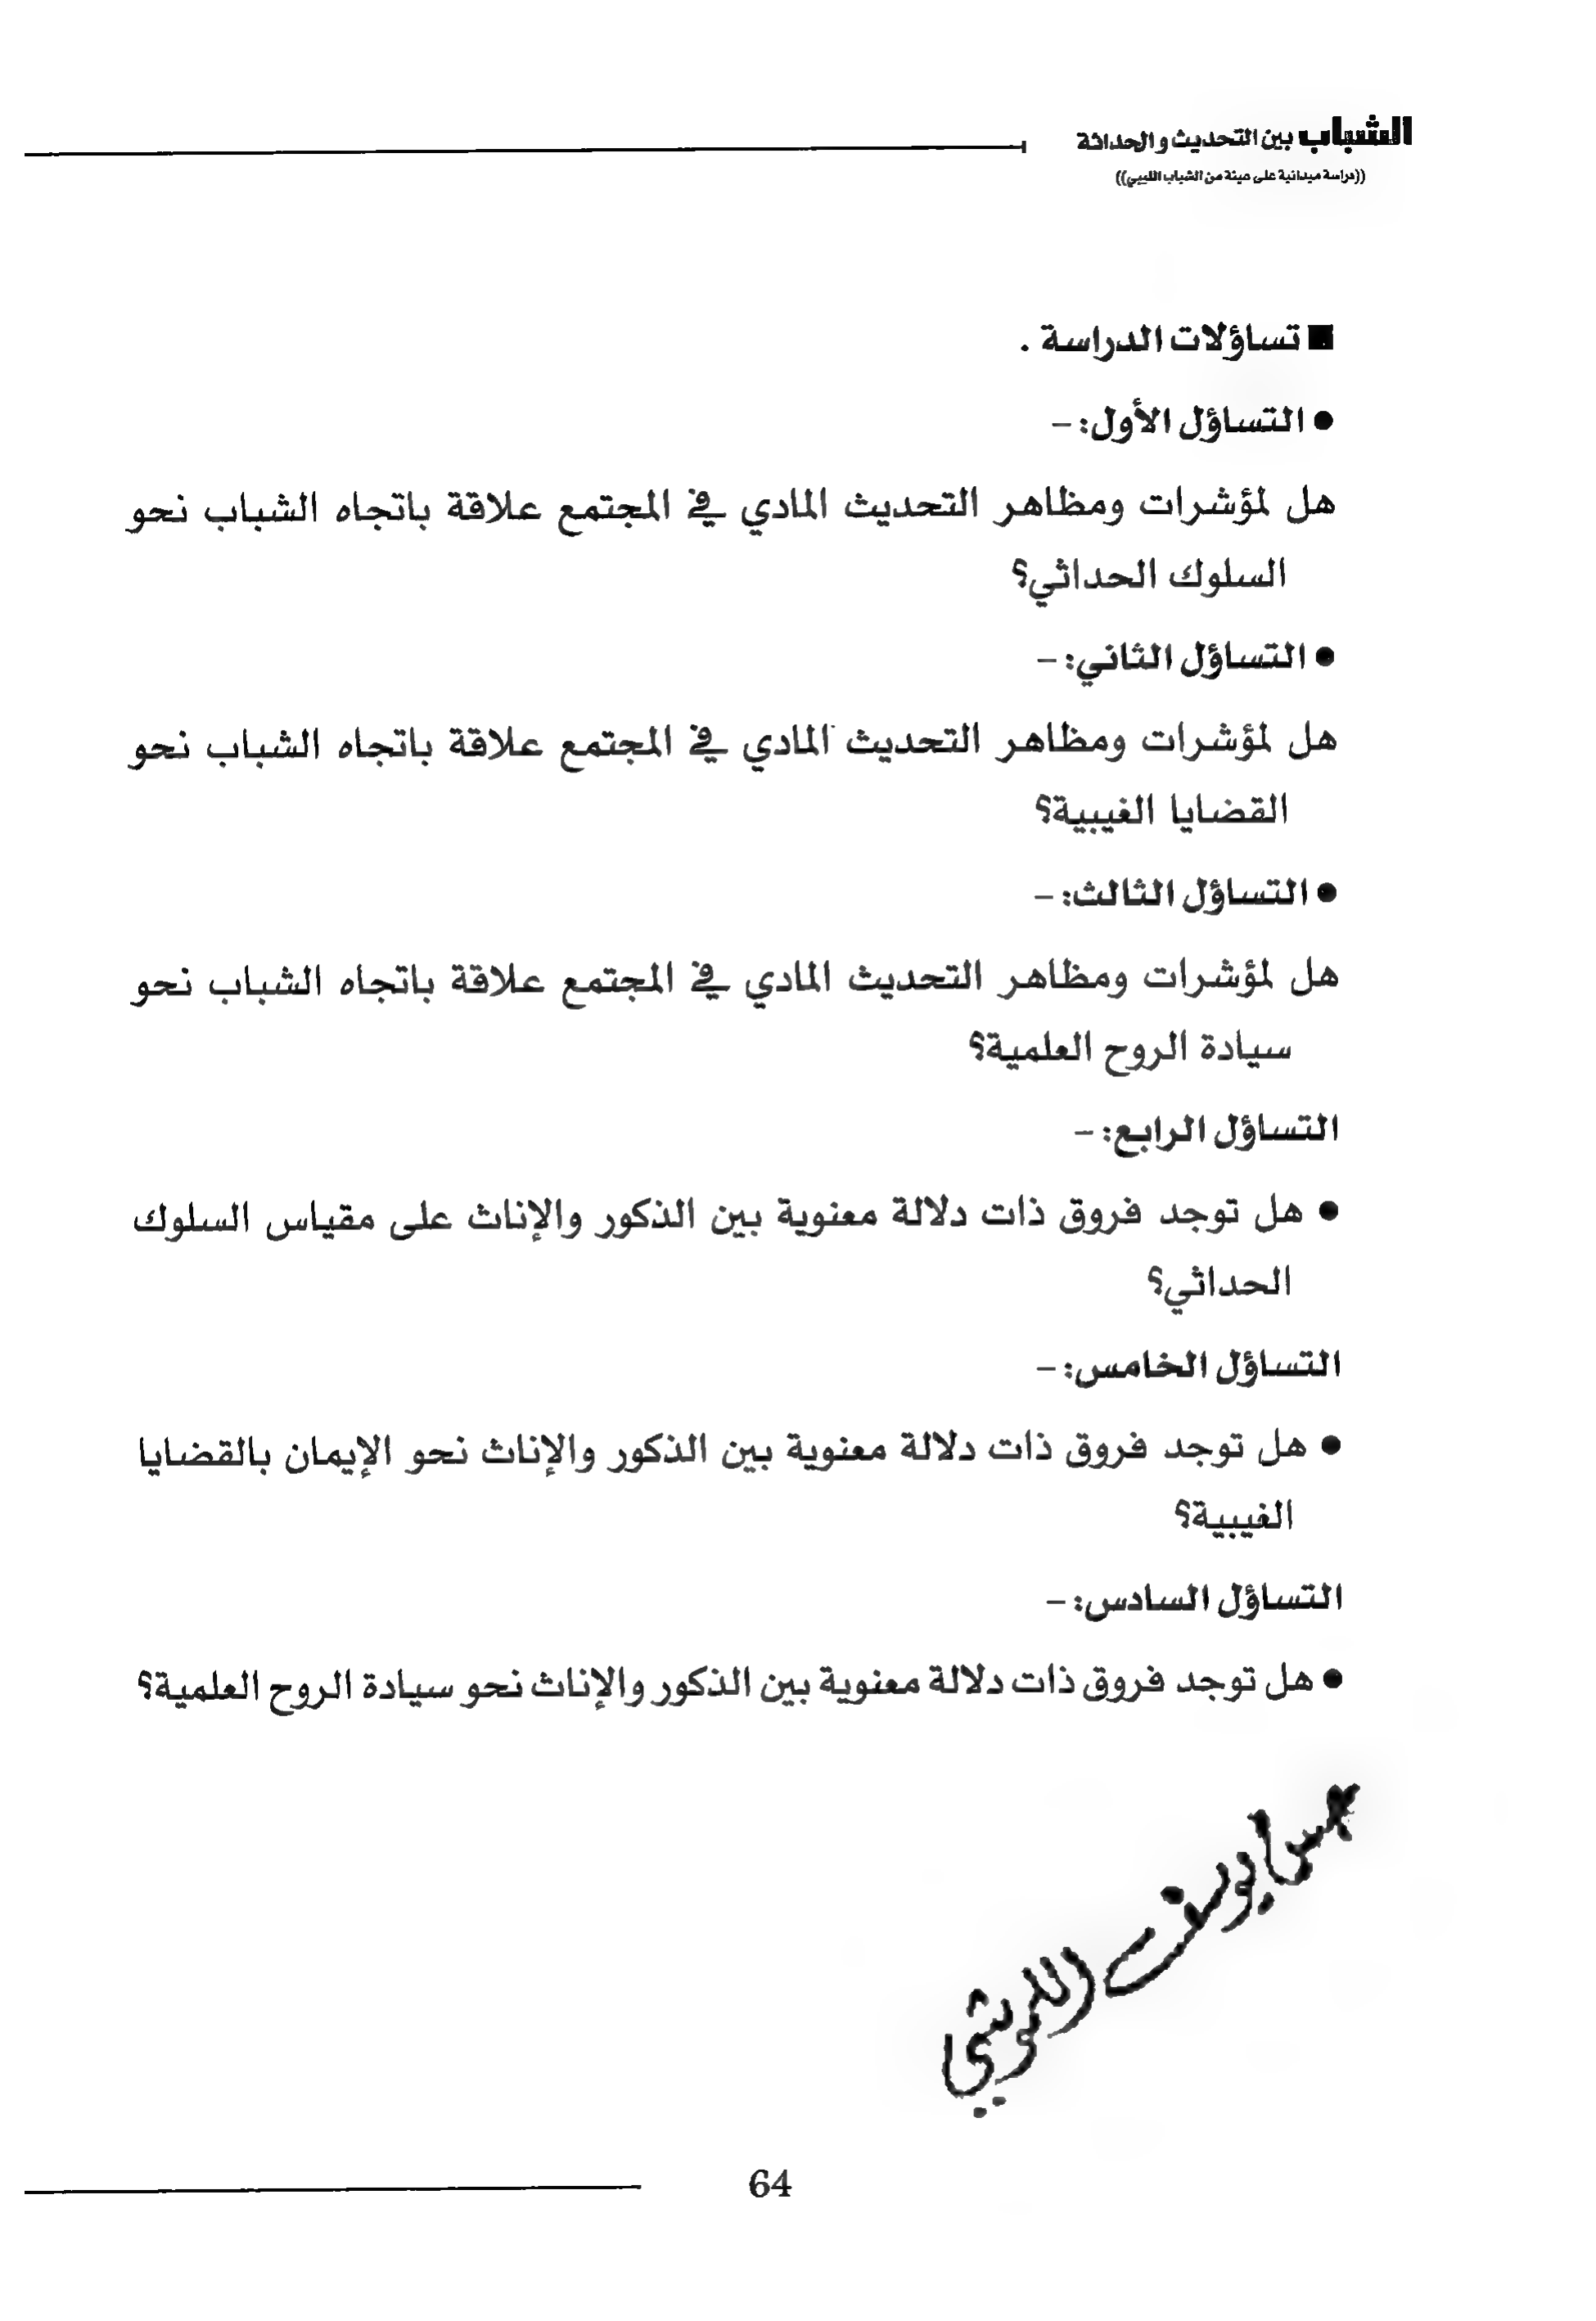 الشباب بين التحديث والحداثة
((دراسة ميدانية على عينة من الشباب الليبي))
■ تساؤلات الدراسة .
● التساؤل الأول: –
هل لمؤشرات ومظاهر التحديث المادي في المجتمع علاقة باتجاه الشباب نحو
السلوك الحداثي؟
● التساؤل الثاني: –
هل لمؤشرات ومظاهر التحديث المادي في المجتمع علاقة باتجاه الشباب نحو
القضايا الغيبية؟
● التساؤل الثالث: –
هل لمؤشرات ومظاهر التحديث المادي في المجتمع علاقة باتجاه الشباب نحو
سيادة الروح العلمية؟
التساؤل الرابع: –
● هل توجد فروق ذات دلالة معنوية بين الذكور والإناث على مقياس السلوك
الحداثي؟
التساؤل الخامس: –
● هل توجد فروق ذات دلالة معنوية بين الذكور والإناث نحو الإيمان بالقضايا
الغيبية؟
التساؤل السادس: –
● هل توجد فروق ذات دلالة معنوية بين الذكور والإناث نحو سيادة الروح العلمية؟
يوسف
64